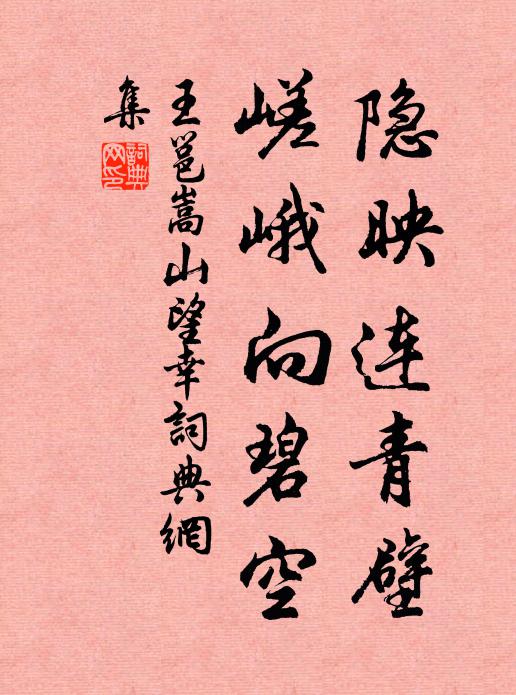 隐映连青壁
嵯峨向碧空
王邕嵩山望幸詞典網
集
詞典
网印